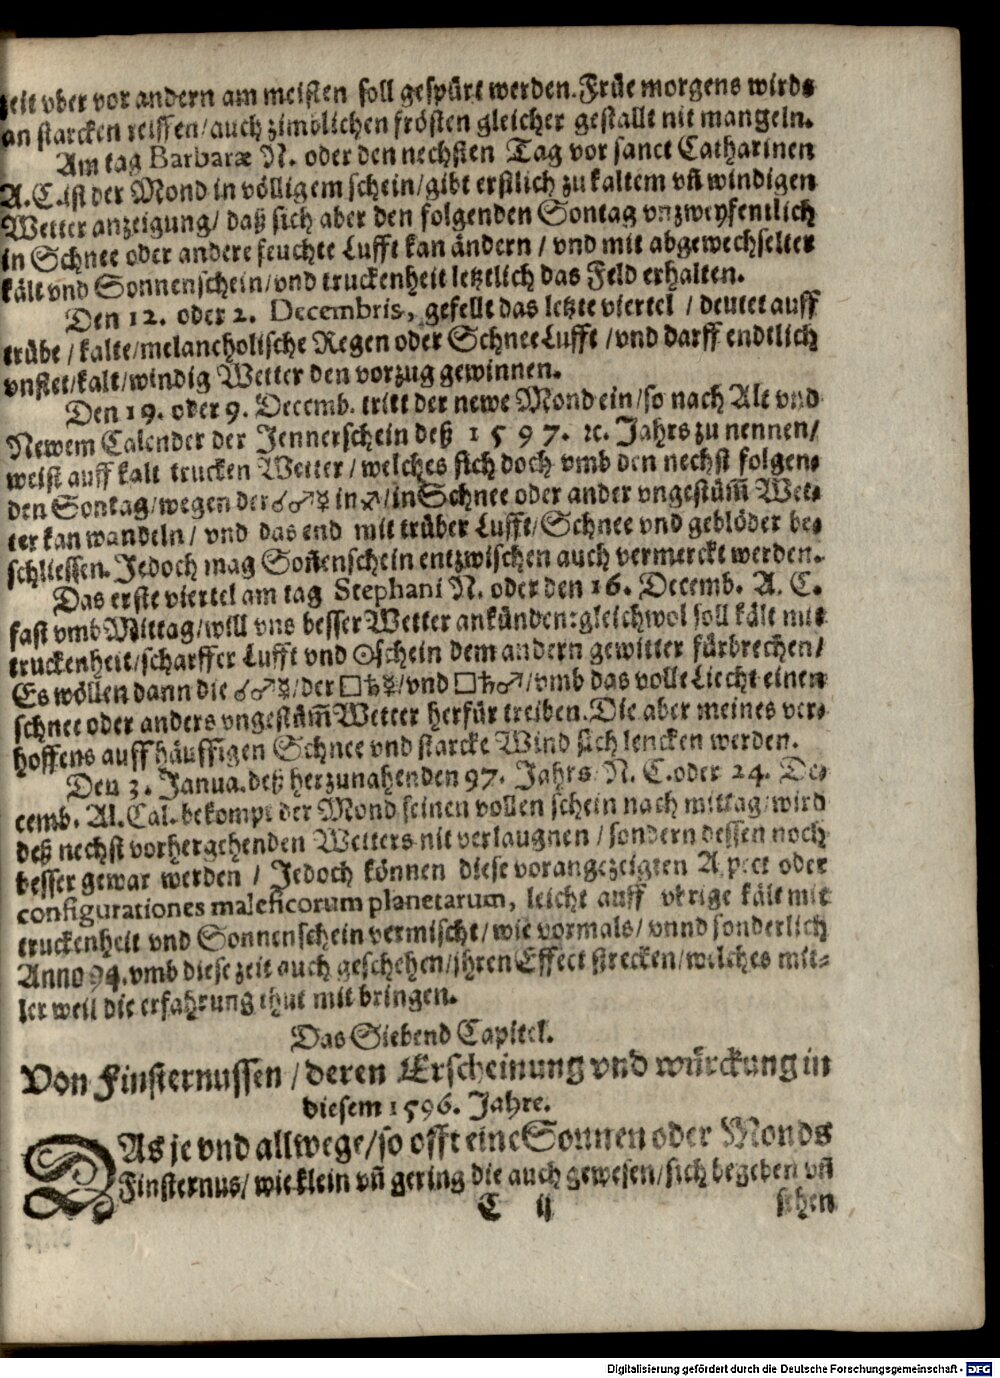 zeit vber vor andern am meisten soll gespürt werden. Früe morgens wirds
an starcken reiffen/auch zimblichen frösten gleicher gestallt nit mangeln.
Am tag Barbaræ N. oder den nechsten Tag vor sanct Catharinen
A.C. ist der Mond in völligem schein/gibt erstlich zu kaltem vñ windigen
Wetter anzeigung/ daß sich aber den folgenden Sontag vnzweyfentlich
in Schnee oder andere feuchte Lufft kan ändern / vnd mit abgewechselter
kält vnd Sonnenschein/vnd truckenheit letztlich das Feld erhalten.
Den 12. oder 2. Decembris, gefellt das letzte viertel / deutet auff
trübe / kalte/melancholische Regen oder Schnee Lufft /vnd darff endtlich
vnstet/kalt/windig Wetter den vorzug gewinnen.
Den 19. oder 9. Decemb. tritt der newe Mond ein/so nach Alt vnd
Newem Calender der Jennerschein deß 1597. ꝛc. Jahrs zu nennen/
weist auff kalt trucken Wetter / welches sich doch vmb den nechst folgen-
den Sontag/wegen der ☌♂☿ in ♐/in Schnee oder ander vngestüm̃ Wet-
ter kan wandeln / vnd das end mit trüber Lufft/Schnee vnd geblöder be-
schliessen. Jedoch mag Soñenschein entzwischen auch vermerckt werden.
Das erste viertel am tag Stephani N. oder den 16. Decemb. A. C.
fast vmb Mittag/will vns besser Wetter ankünden:gleichwol soll kält mit
truckenheit/scharffer Lufft vnd ☉schein dem andern gewitter fürbrechen/
Es wöllen dann die ☌♂☿/der □♄☿/vnd □♄♂/vmb das volle Liecht einen
schnee oder anders vngestüm̃ Wetter herfür treiben. Die aber meines ver-
hoffens auff häuffigen Schnee vnd starcke Wind sich lencken werden.
Den 3. Janua. deß herzunahenden 97. Jahrs N. C. oder 24. De-
cemb. Al. Cal. bekompt der Mond seinen vollen schein nach mittag/wird
deß nechst vorhergehenden Wetters nit verlaugnen / sondern dessen noch
besser gewar werden / Jedoch können diese vorangezeigten Aspect oder
configurationes maleficorum planetarum, leicht auff vbrige kält mit
truckenheit vnd Sonnenschein vermischt/wie vormals/ vnnd sonderlich
Anno 94. vmb diese zeit auch geschehen/jhren Effect strecken/welches mit-
ler weil die erfahrung thut mit bringen.
Das Siebend Capitel.
Von Finsternussen / deren Erscheinung vnd würckung in
diesem 1596. Jahre.
DAs je vnd allwege/so offt eine Sonnen oder Monds
Finsternus/ wie klein vñ gering die auch gewesen/sich begeben vñ
C ij sehen
Digitalisierung gefördert durch die Deutsche Forschungsgemeinschaft - DFG